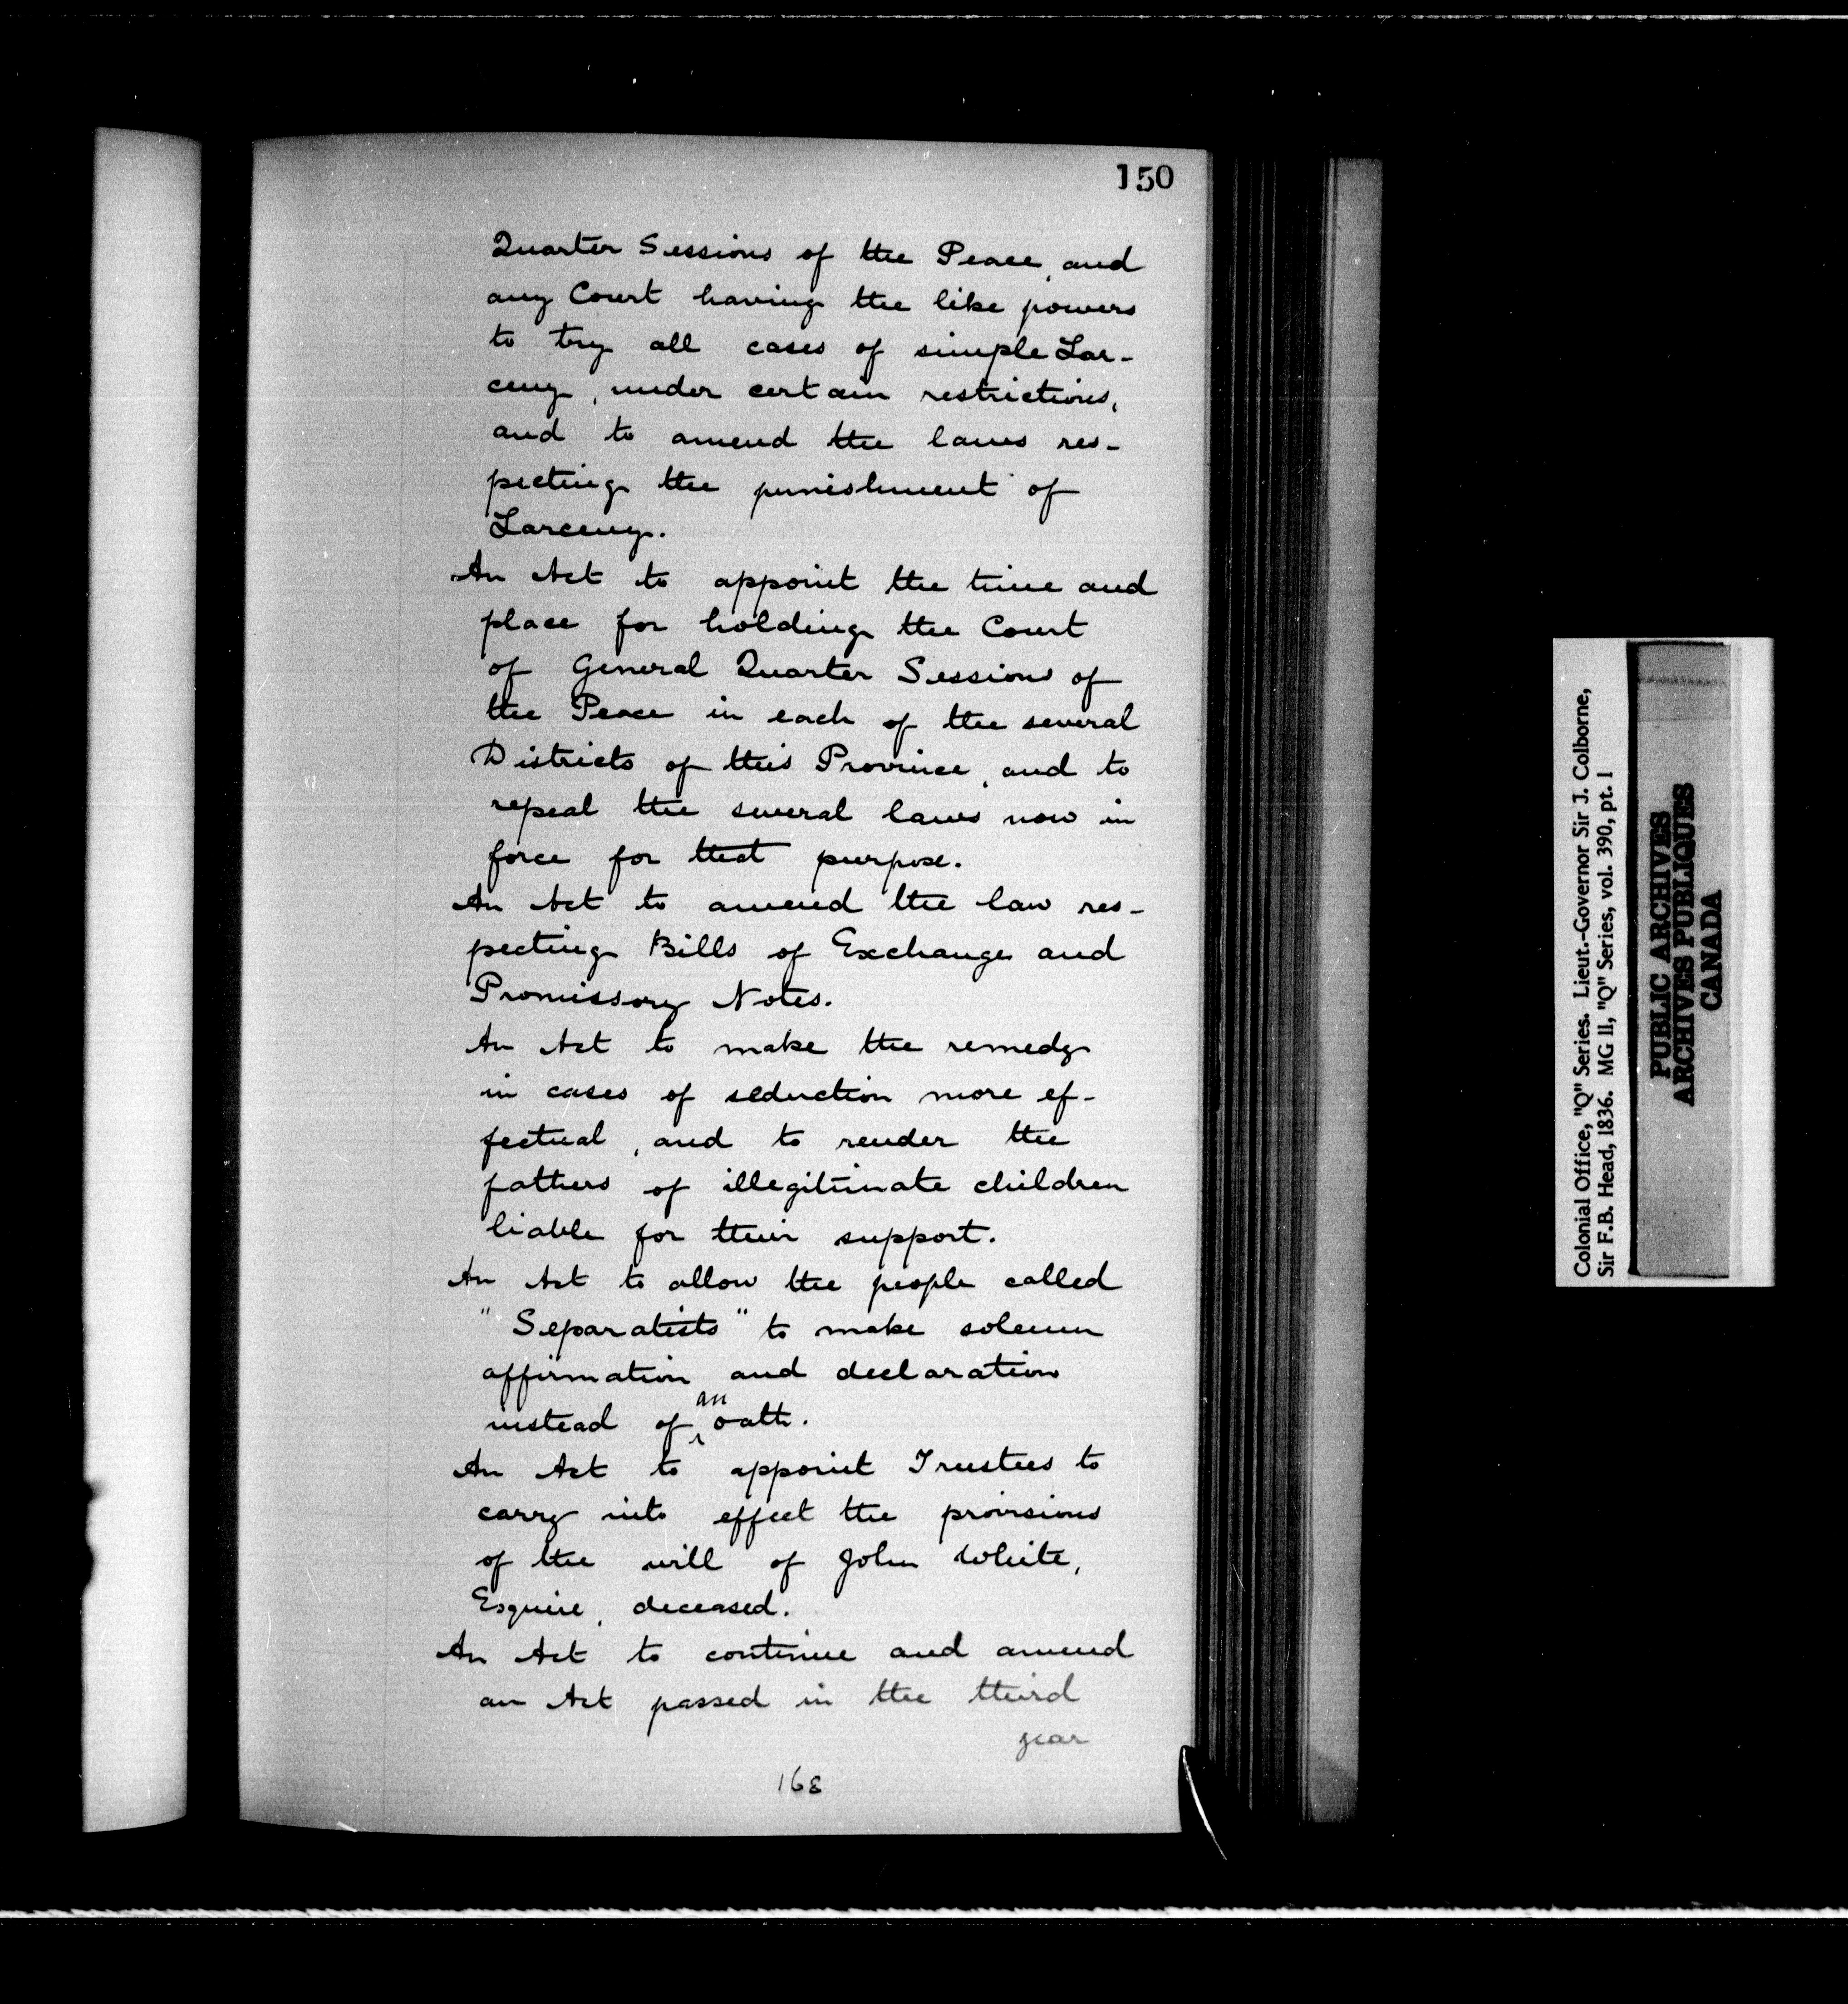 150
Quarter Sessions of the Peace, and
any Court having the like powers
to try all cases of simple Lar-
ceny, under certain restrictions,
and to amend the laws res-
pecting the punishment of
Larceny.
An Act to appoint the time and
place for holding the Court
of General Quarter Sessions of
the Peace in each of the several
Districts of this Province, and to
repeal the several laws now in
force for that purpose.
An Act to amend the law res-
pecting Bills of Exchange and
Promissory Notes.
An Act to make the remedy
in cases of seduction more ef-
fectual, and to render the
fathers of illegitimate children
liable for their support.
An Act to allow the people called
"Separatists" to make solemn
affirmation and declaration
instead of an oath.
An Act to appoint Trustees to
carry into effect the provisions
of the will of John White,
Esquire, deceased.
An Act to continue and amend
an Act passed in the third
year
168
Colonial Office, "Q" Series. Lieut.-Governor Sir J. Colborne,
Sir F.B. Head, 1836. MG 11, "Q" Series, vol. 390, pt. 1
PUBLIC ARCHIVES
ARCHIVES PUBLIQUES
CANADA